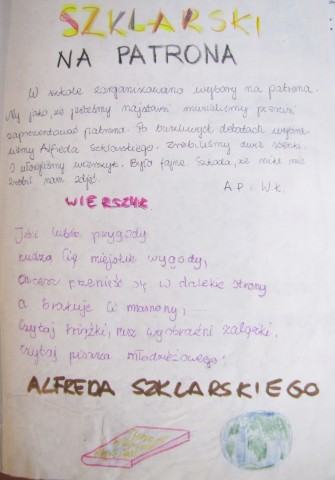 SZKLARSKI
NA PATRONA
W szkole zorganizowano wybory na patrona.
My jako, że jesteśmy najstarsi musieliśmy przecież
zaprezentować patrona. Po burzliwych debatach wybra-
liśmy Alfreda Szklarskiego. Zrobiliśmy dwie scenki
i ułożyliśmy wierszyk. Było fajnie. Szkoda, że nikt nie
zrobił nam zdjęć.
A.P i W.K.
WIERSZYK
Jeśli lubisz przygody
nudzą Cię miejskie wygody,
Chcesz przenieść się w dalekie strony
a brakuje Ci mamony,
Czytaj książki, rusz wyobraźni zalążki,
Czytaj pisarza młodzieżowego:
ALFREDA SZKLARSKIEGO